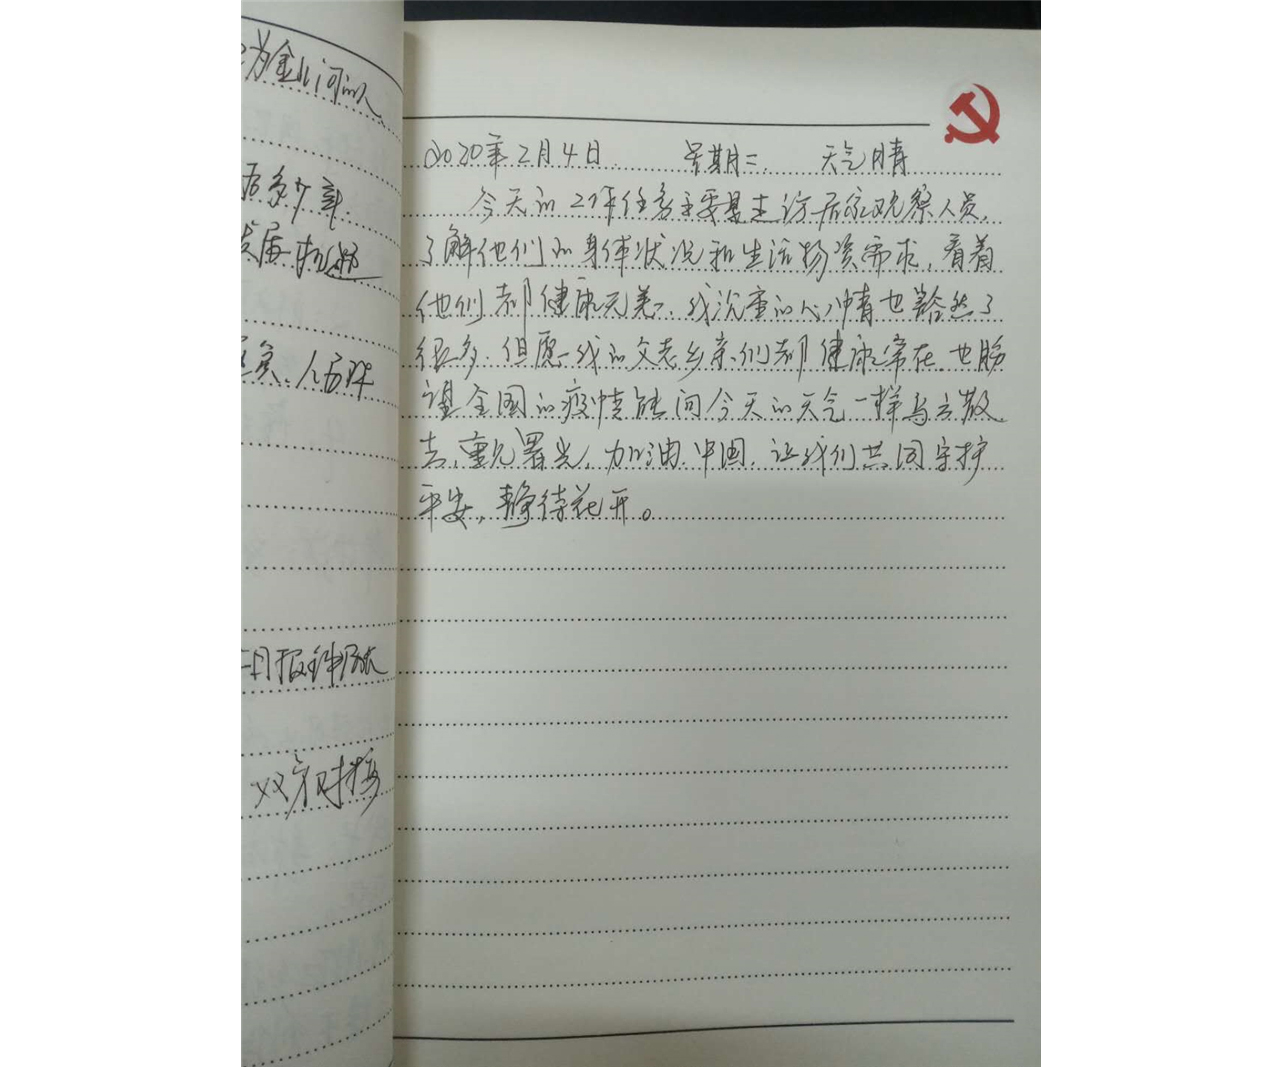 为金川河的人
2020年2月4日 星期二 天气晴
今天的工作任务主要是走访居家观察人员,
了解他们的身体状况和生活物资需求,看着
他们都健康无恙,我沉重的心情也豁然了
很多.但愿我的父老乡亲们都健康常在.也盼
望全国的疫情能同今天的天气一样乌云散
去,重见署光,加油.中国,让我们共同守护
平安,静待花开。
双牙对接